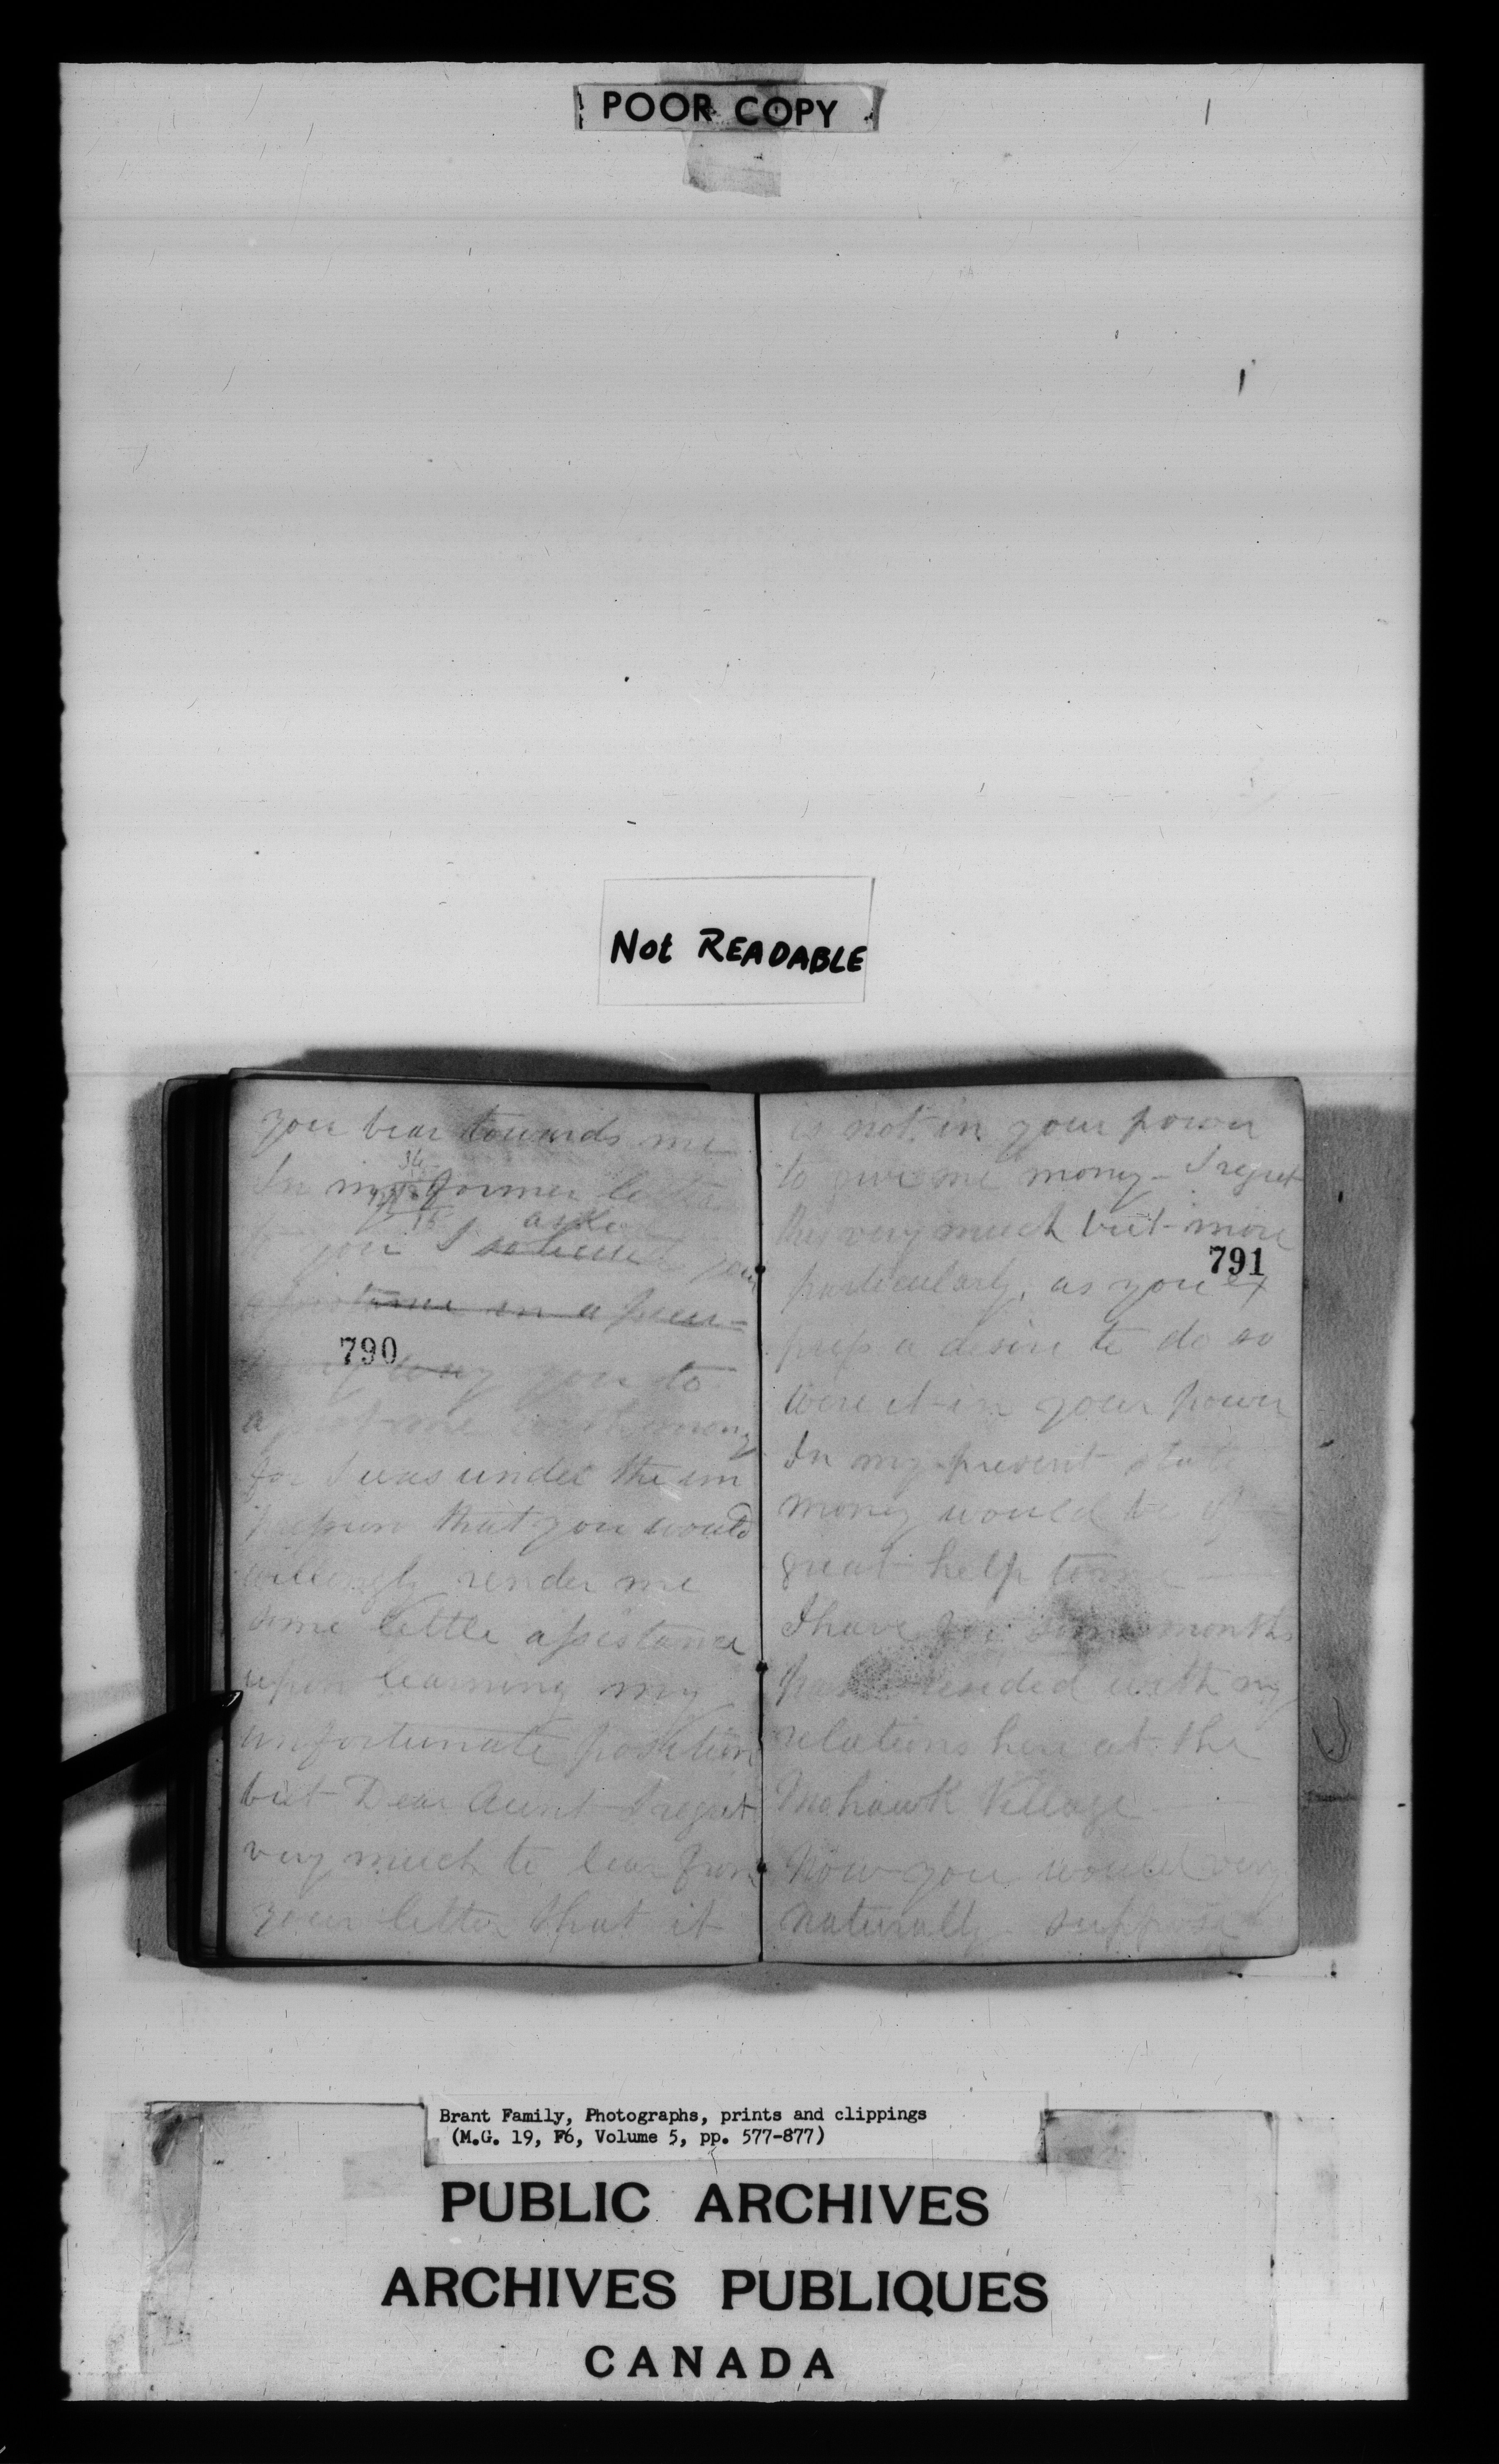 POOR COPY
Not READABLE
you bear towards me
34
In my former letter
15
asked
to you I solicited your
assistance in a pecu-
790
way you to
assist me with money
for I was under the im
pression that you would
willingly render me
some little assistance
upon learning my
unfortunate position
but Dear Aunt I regret
very much to lear from
your letter that it
is not in your power
to give me money - I regret
this very much but more
791
particularly, as you ex
press a desire to do so
were it in your power
In my present state
money would be of
great help to me
I have for some months
past resided with my
relations here at the
Mohawk Village
Now you would very
naturally suppose
Brant Family, Photographs, prints and clippings
(M.G. 19, F6, Volume 5, pp. 577-877)
PUBLIC ARCHIVES
ARCHIVES PUBLIQUES
CANADA